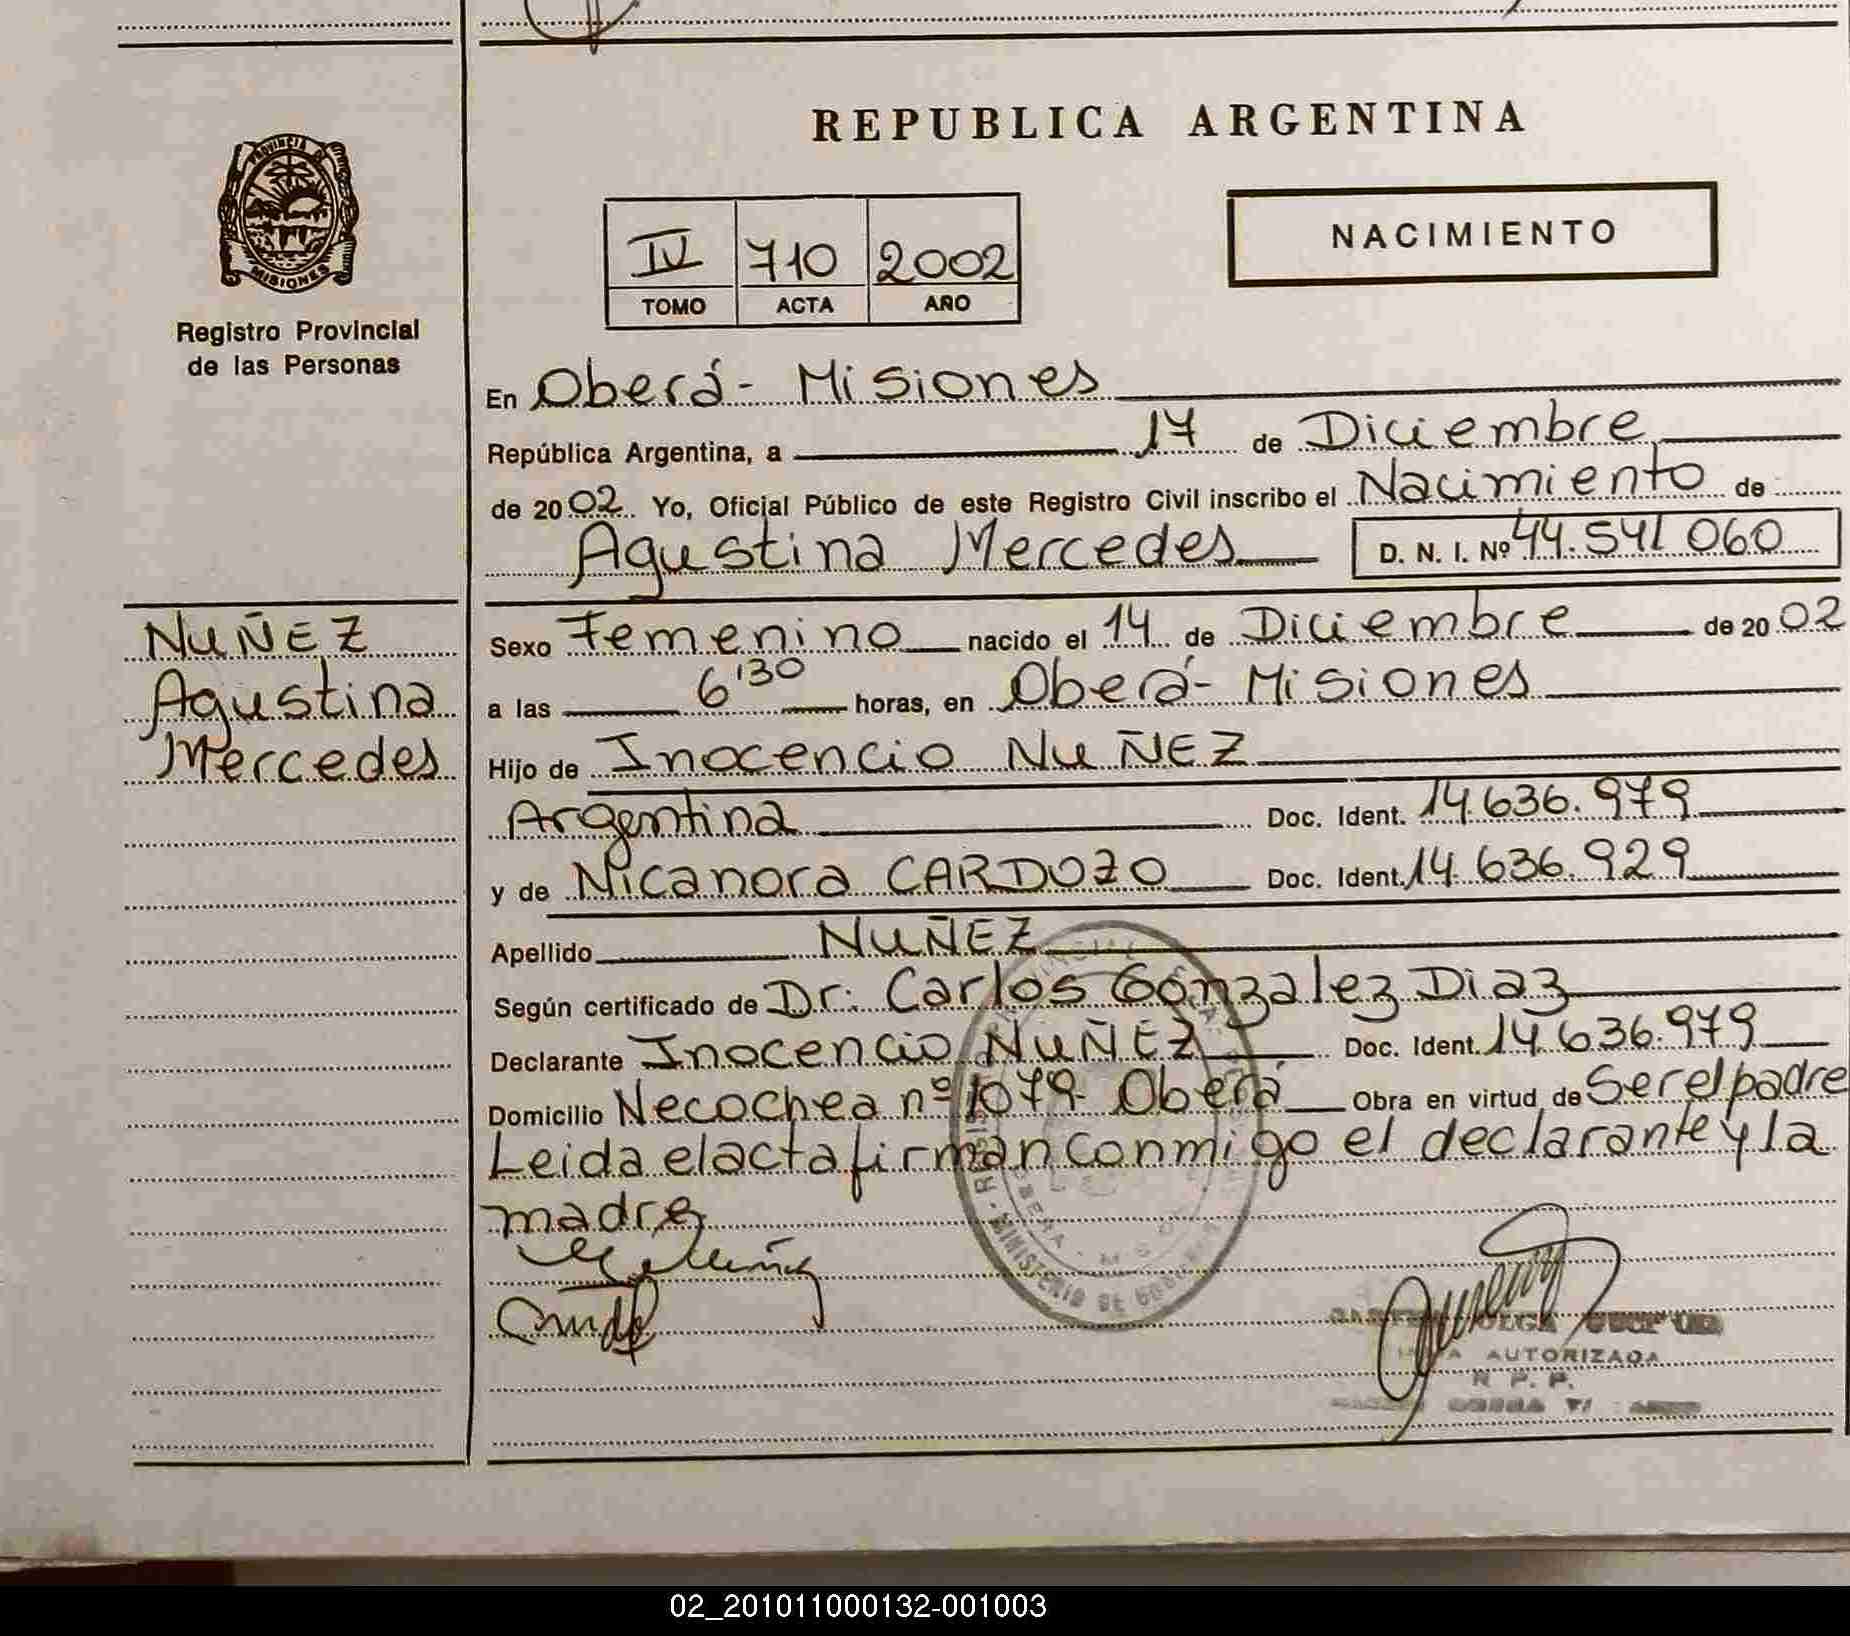 PROVINCIA DE
MISIONES
Registro Provincial
de las Personas
NUÑEZ
Agustina
Mercedes
REPUBLICA ARGENTINA
IV 710 2002
TOMO ACTA AÑO
NACIMIENTO
En Oberá - Misiones
República Argentina, a 17 de Diciembre
de 2002 Yo, Oficial Público de este Registro Civil inscribo el Nacimiento de
Agustina Mercedes D. N. I. Nº 44.541 060
Sexo Femenino nacido el 14 de Diciembre de 2002
a las 6'30 horas, en Oberá - Misiones
Hijo de Inocencio NuÑEZ
Argentina Doc. Ident. 14.636.979
y de Nicanora CARDOZO Doc. Ident. 14.636.929
Apellido NUÑEZ
Según certificado de Dr. Carlos Gónzalez Diaz
Declarante Inocencio NUÑEZ Doc. Ident. 14.636.979
Domicilio Necochea nº 1079 Oberá Obra en virtud de Ser el padre
Leida el acta firman conmigo el declarante y la
madre
MINISTERIO DE
OLGA
AUTORIZADA
R P. P.
02_201011000132-001003